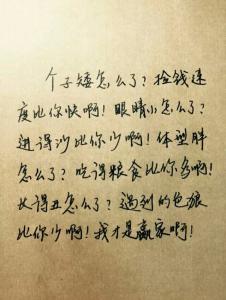 个子矮怎么了？捡钱速
度比你快啊！眼睛小怎么了？
进得沙比你少啊！体型胖
怎么了？吃得粮食比你多啊！
长得丑怎么了？遇到的色狼
比你少啊！我才是赢家啊！